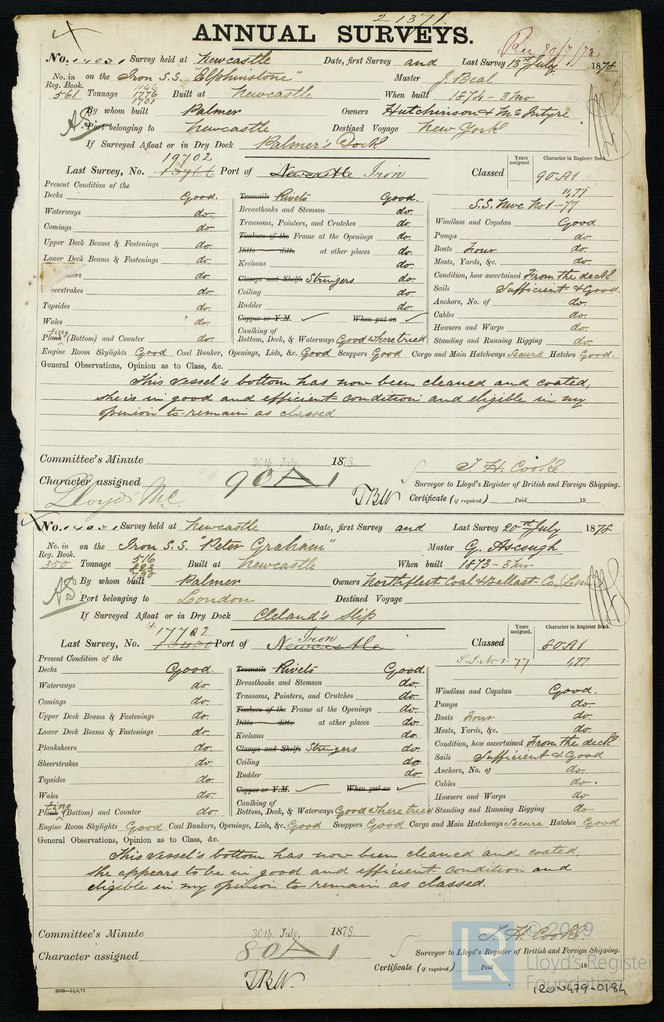 21371
ANNUAL SURVEYS.
Rec 30/7/78
No. Survey held at Newcastle Date, first Survey and Last Survey 13th July 1878
No. in Reg. Book. on the Iron S.S. "Elphinstone" Master J. Beal
561 Tonnage 1776 Built at Newcastle When built 1874 - 3 mo
By whom built Palmer Owners Hutchinson & McIntyre
Port belonging to Newcastle Destined Voyage New York
If Surveyed Afloat or in Dry Dock Palmer's Dock
19702
Last Survey, No. Port of Newcastle Iron Classed
Years assigned. Character in Register Book.
90A1
4,77
S.S. Nwc No 1-77
Present Condition of the
Decks Good. Treenails Rivets Good.
Waterways do. Breasthooks and Stemson do. Windlass and Capstan Good
Comings do. Transoms, Pointers, and Crutches do. Pumps do.
Upper Deck Beams & Fastenings do. Timbers of the Frame at the Openings do. Boats Four do.
Lower Deck Beams & Fastenings do. Ditto ditto at other places do. Masts, Yards, &c. do.
Keelsons do. Condition, how ascertained From the deck
do. Clamps and Shelfs Stringers do. Sails Sufficient & Good.
do. Ceiling do. Anchors, No. of do.
Topsides do. Rudder do. Cables do.
Wales do. Copper or Y.M. When put on Hawsers and Warps do.
Plank ting (Bottom) and Counter do. Caulking of Bottom, Deck, & Waterways Good where tried Standing and Running Rigging do.
Engine Room Skylights Good Coal Bunker, Openings, Lids, &c. Good Scuppers Good Cargo and Main Hatchways Secure Hatches Good.
General Observations, Opinion as to Class, &c.
This vessel's bottom has now been cleaned and coated,
she is in good and efficient condition and eligible in my
opinion to remain as classed
Committee's Minute 30th July 1878.
Character assigned 90A1 T. H. Cooke.
Lloyd's MC TBW
Surveyor to Lloyd's Register of British and Foreign Shipping.
Certificate (if required) Paid 18
No. Survey held at Newcastle Date, first Survey and Last Survey 20th July 1878
No. in Reg. Book. on the Iron S.S. "Peter Graham" Master G. Ascough
350 Tonnage 516 Built at Newcastle When built 1873 - 3 mo
By whom built Palmer Owners Northfleet Coal & Ballast Co., Lim
Port belonging to London Destined Voyage
If Surveyed Afloat or in Dry Dock Cleland's Slip
17702
Last Survey, No. Port of Newcastle Iron Classed
Years assigned. Character in Register Book.
80A1
4,77
Present Condition of the
Decks Good. Treenails Rivets Good.
Waterways do Breasthooks and Stemson do. Windlass and Capstan Good.
Comings do Transoms, Pointers, and Crutches do. Pumps do.
Upper Deck Beams & Fastenings do Timbers of the Frame at the Openings do. Boats Four do.
Lower Deck Beams & Fastenings do Ditto ditto at other places do. Masts, Yards, &c. do.
Planksheers do Keelsons do. Condition, how ascertained From the deck
Sheerstrakes do. Clamps and Shelfs Stringers do. Sails Sufficient & Good
Topsides do Ceiling do Anchors, No. of do.
Wales do Rudder do. Cables do.
Copper or Y.M. When put on Hawsers and Warps do
Plank ting (Bottom) and Counter do Caulking of Bottom, Deck, & Waterways Good where tried Standing and Running Rigging do
Engine Room Skylights Good Coal Bunkers, Openings, Lids, &c. Good Scuppers Good Cargo and Main Hatchways Secure Hatches Good
General Observations, Opinion as to Class, &c.
This vessel's bottom has now been cleaned and coated,
she appears to be in good and efficient condition and
eligible in my opinion to remain as classed.
Committee's Minute 30th July 1878.
Character assigned 80A1 T. H. Cooke.
TBW
Surveyor to Lloyd's Register of British and Foreign Shipping.
Certificate (if required) Paid 18
LR
© 2019
Lloyd's Register
Foundation
IRON479-0184